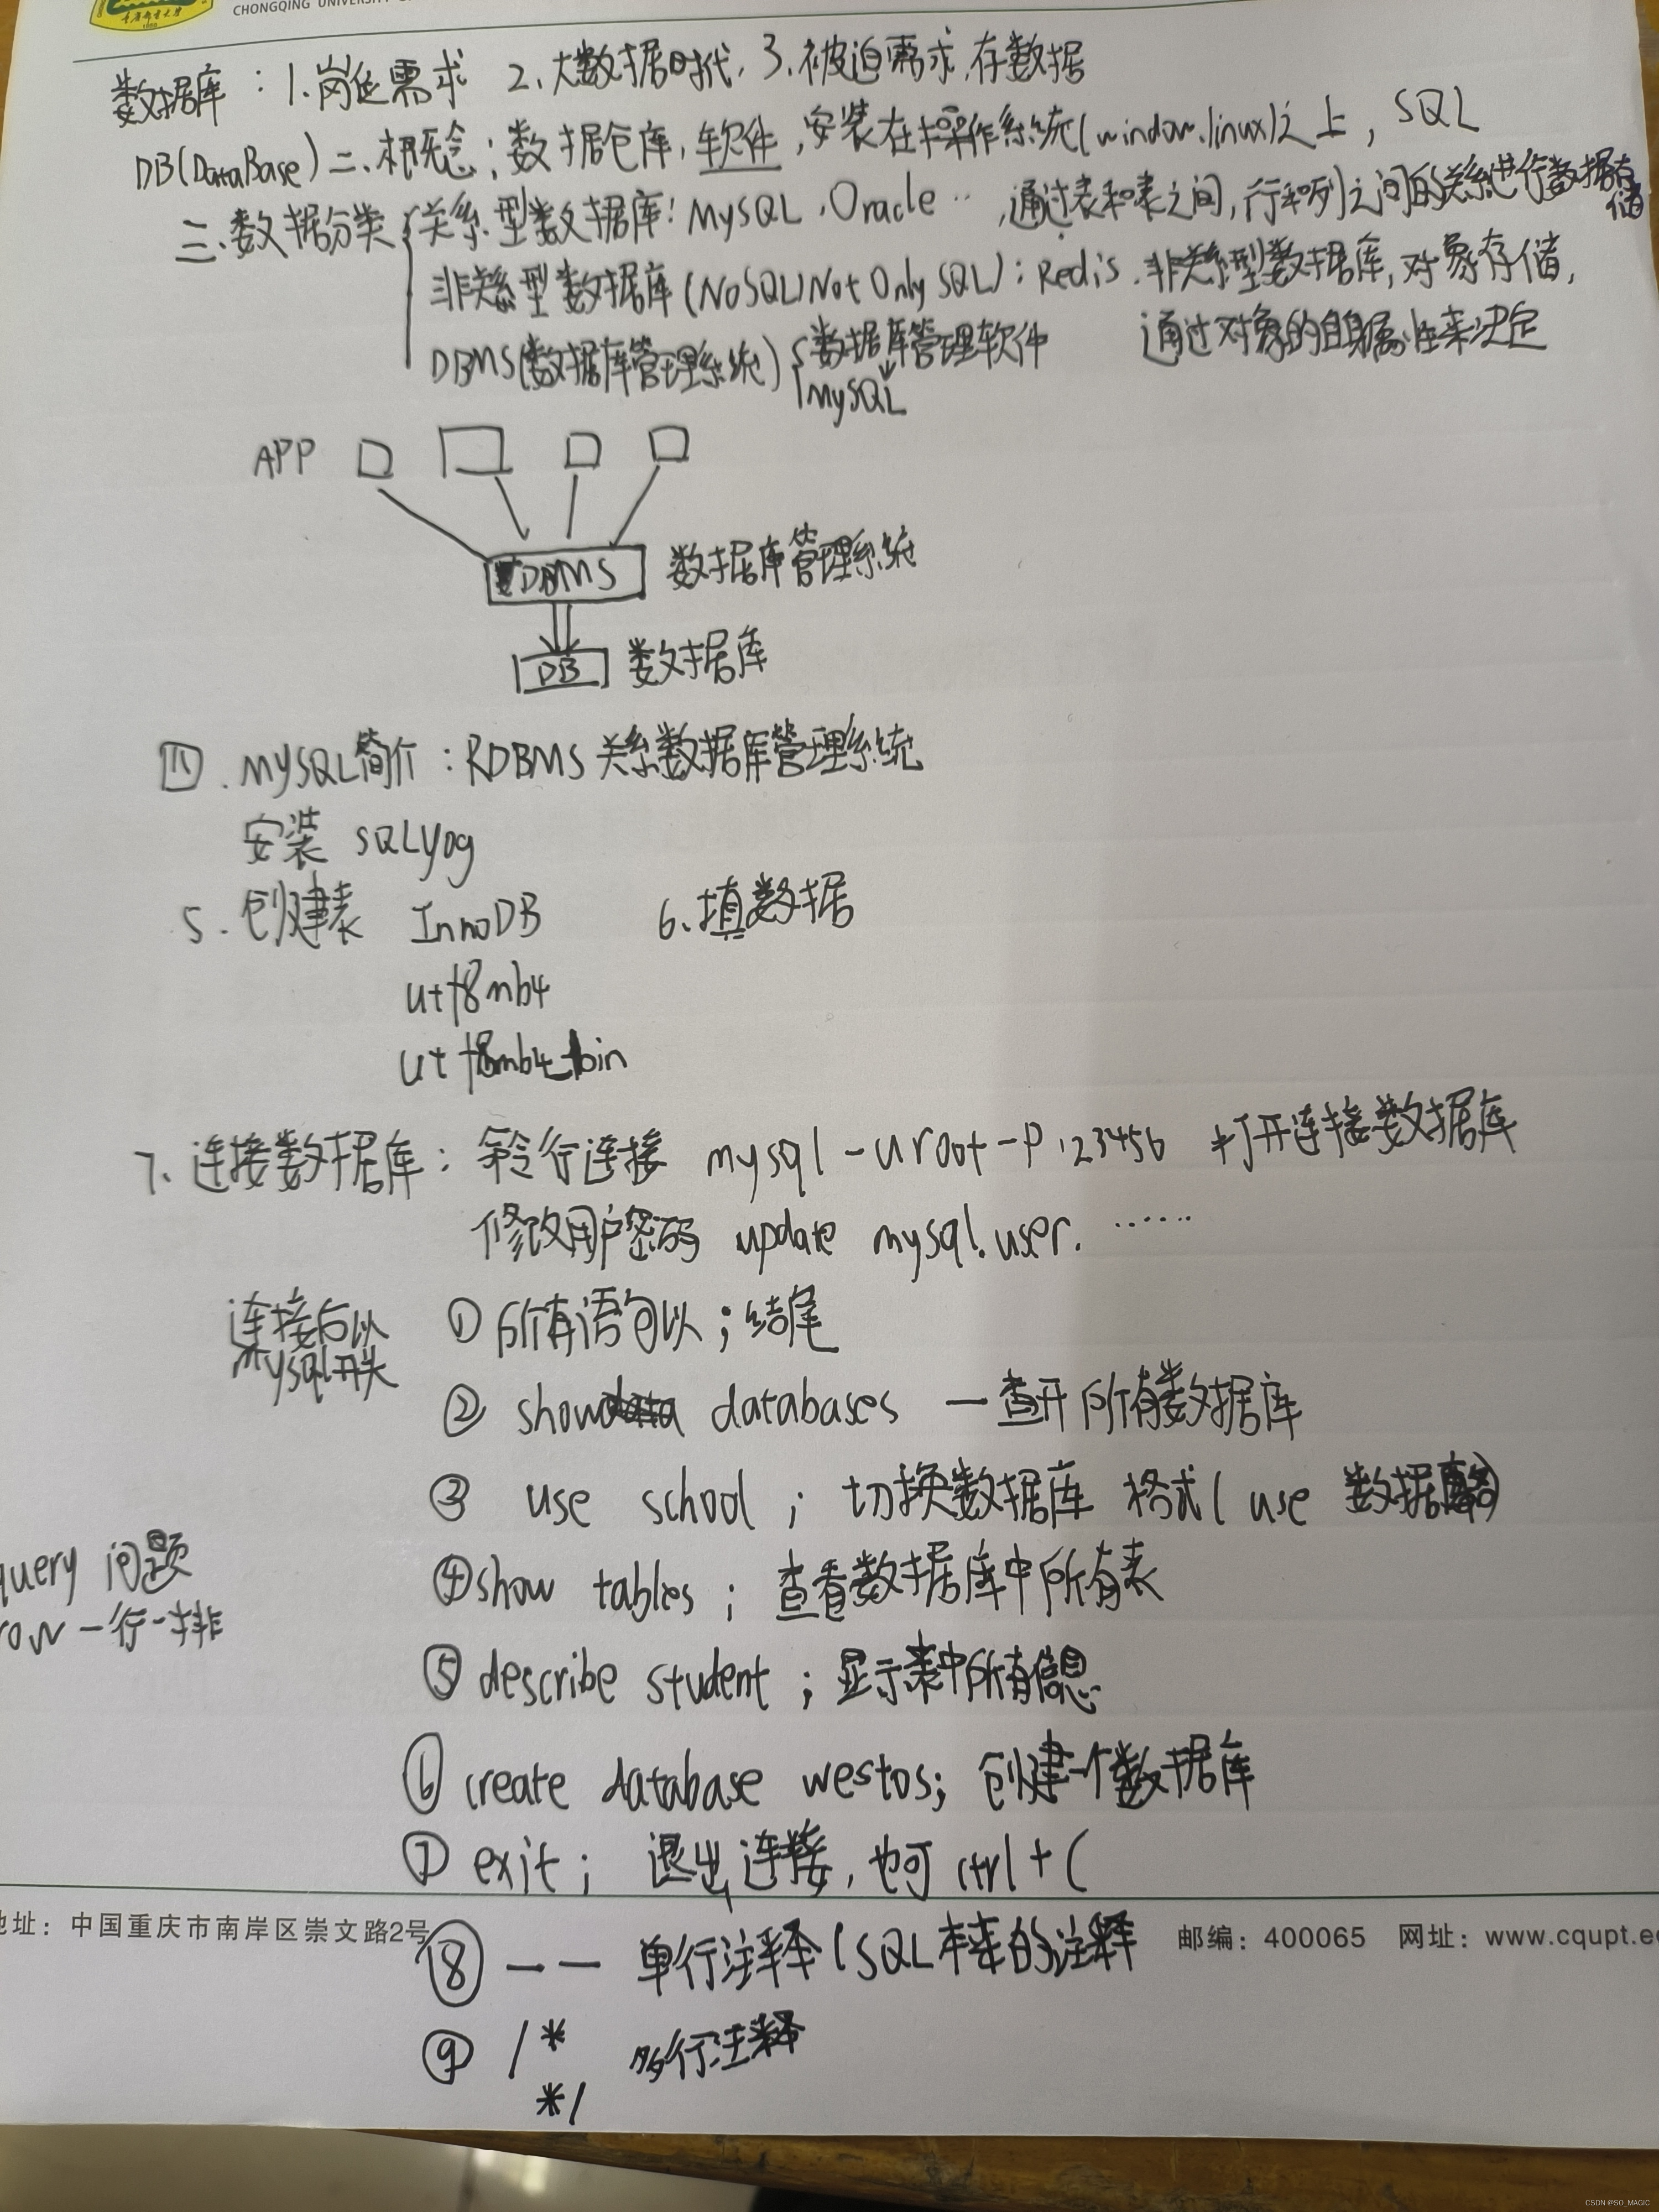 CHONGQING UNIVERSITY
数据库：1.岗位需求 2、大数据时代，3、被迫需求，存数据
DB(DataBase) 二、概念：数据仓库，软件，安装在操作系统(window.linux)之上，SQL
三、数据分类 关系型数据库：MySQL、Oracle…，通过表和表之间，行和列之间的关系进行数据存储
非关系型数据库(NoSQL)Not Only SQL)：Redis、非关系型数据库，对象存储，
通过对象的自身属性来决定
DBMS(数据库管理系统) 数据库管理软件
MySQL
APP
DBMS 数据库管理系统
DB 数据库
四. MySQL简介：RDBMS 关系数据库管理系统
安装 SQLyog
5. 创建表 InnoDB 6、填数据
utf8mb4
utf8mb4_bin
7、连接数据库：命令行连接 mysql -uroot -p 123456 打开连接数据库
修改用户密码 update mysql.user. ……
连接后以
mysql开头
① 所有语句以；结尾
② show databases 一查看所有数据库
③ use school ; 切换数据库 格式( use 数据库名)
query 问题
row 一行一排
④ show tables ; 查看数据库中所有表
⑤ describe student ; 显示表中所有信息
⑥ create database westos; 创建一个数据库
⑦ exit ; 退出连接，也可 ctrl + C
地址：中国重庆市南岸区崇文路2号 邮编：400065 网址：www.cqupt.e
⑧ -- 单行注释(SQL本来的注释
⑨ /* 多行注释
*/
CSDN @SO_MAGIC